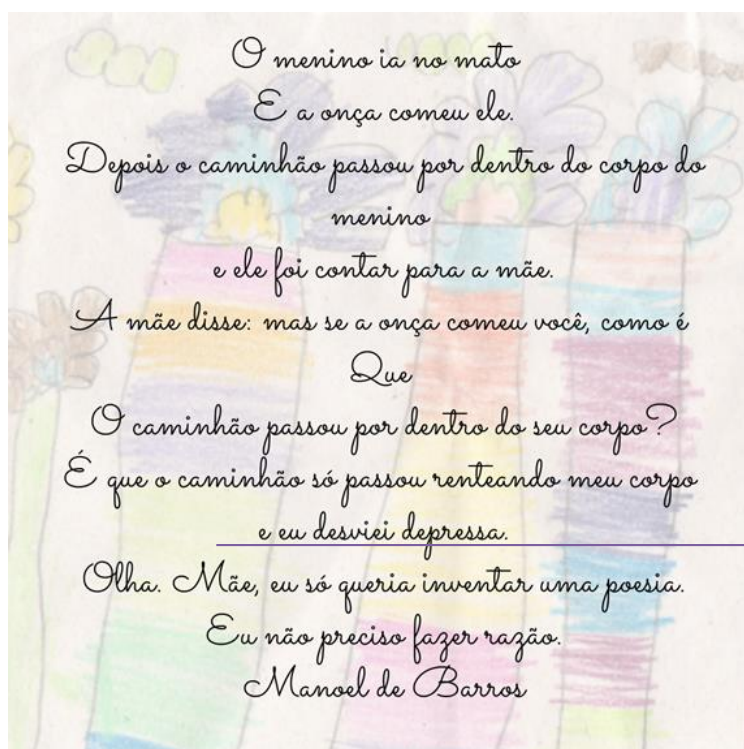 O menino ia no mato
E a onça comeu ele.
Depois o caminhão passou por dentro do corpo do
menino
e ele foi contar para a mãe.
A mãe disse: mas se a onça comeu você, como é
Que
O caminhão passou por dentro do seu corpo?
É que o caminhão só passou renteando meu corpo
e eu desviei depressa.
Olha. Mãe, eu só queria inventar uma poesia.
Eu não preciso fazer razão.
Manoel de Barros